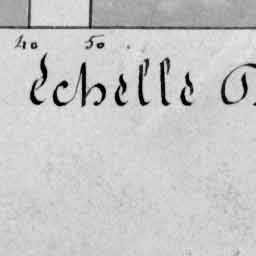 40 50
échelle